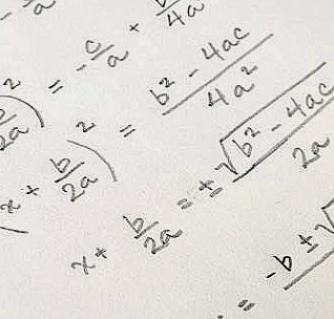 a
2a)² = -c/a + b/4a
(x + b/2a)² = b² - 4ac/4a²
x + b/2a = ± √b² - 4ac/2a
= -b ± √